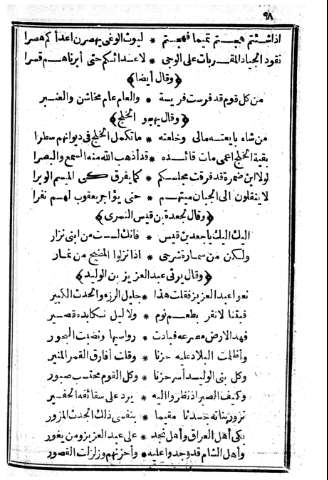 ٩٨
اذا شئتم هجتم تميما فهجتم * ليوث الوغى يهصرن اعداءكم هصرا
نقود الجياد المقربات على الوجى * لاعدائكم حتى أبرناهم قسرا
﴿وقال أيضا﴾
من كل قوم قد فرست فريسة * والعام عام مخاشن والغبر
﴿وقال يهجو الخلج﴾
من شاء بايعته مالى وخلعته * ما تكمل الخلج فى ديوانهم سطرا
بقية الخلج اعمى مات قائده * قد أذهب الله منه السمع والبصرا
لولا ابن ضمرة قد فرقت مجلسكم * كما يفرق كى الميسم الوبرا
لا ينقلون الى الجبان ميتهم * حتى يؤاجر يعقوب لهم نفرا
﴿وقال لجعدة بن قيس النمرى﴾
اليك اليك يا جعد بن قيس * فانك لست من ابنى نزار
ولكن من سمارة شرحى * اذا نزلوا المضيح من غمار
﴿وقال يرثى عبد العزيز بن الوليد﴾
نعوا عبد العزيز فقلت هذا * جليل الرزء والحدث الكبير
فبتنا لا نقر بطعم نوم * ولا ليل نكابده قصير
فهد الارض مصرعه فبادت * رواسيها ونضبت البحور
وأظلمت البلاد عليه حزنا * وقلت أفارق القمر المنير
وكل بنى الوليد أسر حزنا * وكل القوم محتسب صبور
وكيف الصبر اذ نظروا اليه * يرد على سقائفه الحفير
تزور بناته جدثا مقيما * بنفسى ذلك الحدث المزور
بكى أهل العراق وأهل نجد * على عبد العزيز ومن يغور
وأهل الشام قد وجدوا عليه * وأحزنهم وزلزلت القصور